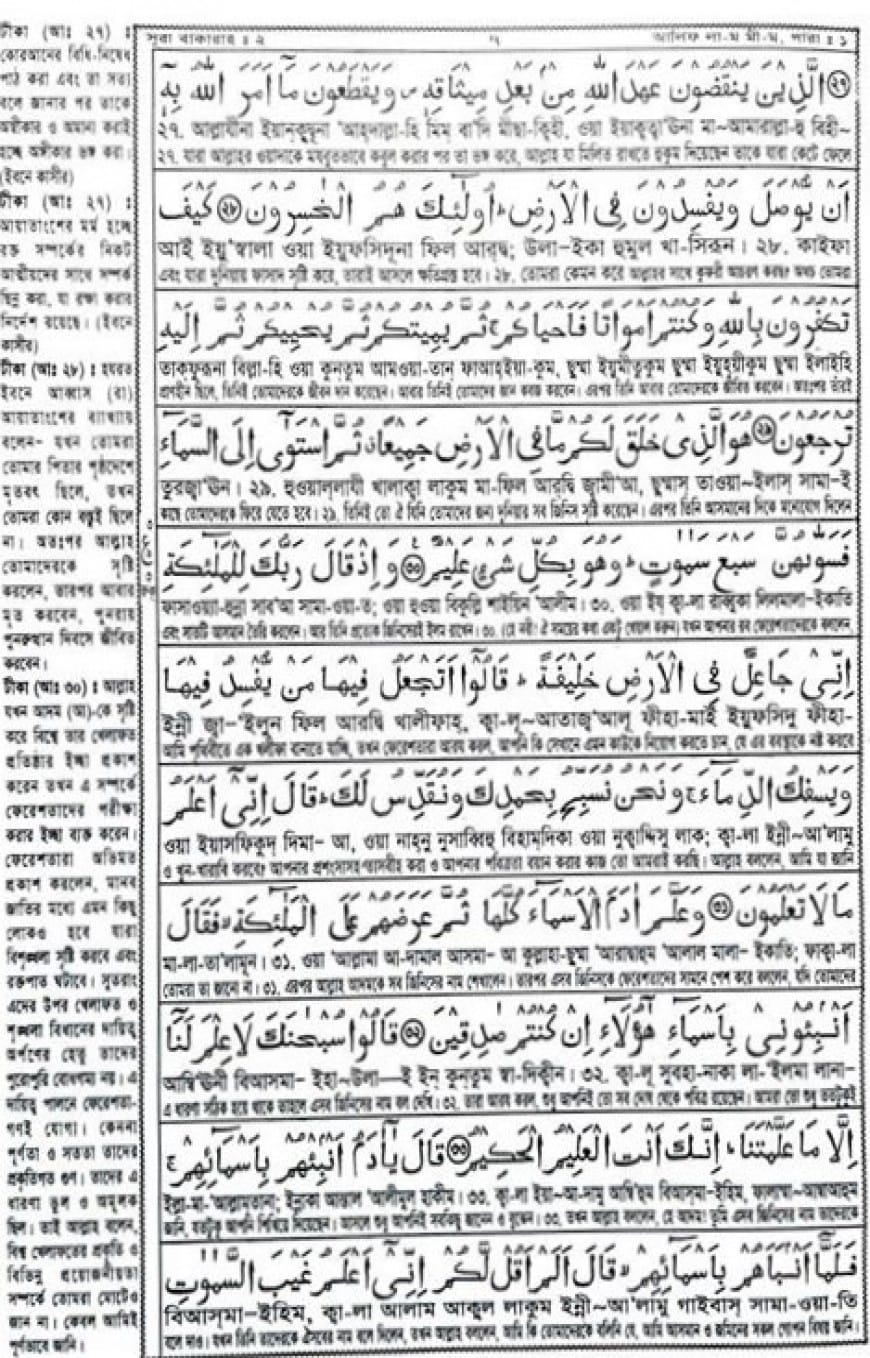 সূরা বাকারাহ : ২ ৭ আলিফ লা-ম মী-ম, পারা : ১
টীকা (আঃ ২৭) :
কোরআনের বিধি-নিষেধ
পাঠ করা এবং তা সত্য
বলে জানার পর তাকে
অস্বীকার ও অমান্য করাই
হচ্ছে অঙ্গীকার ভঙ্গ করা।
(ইবনে কাসীর)
টীকা (আঃ ২৭) :
আয়াতাংশের মর্ম হচ্ছে
রক্ত সম্পর্কের নিকট
আত্মীয়দের সাথে সম্পর্ক
ছিন্ন করা, যা রক্ষা করার
নির্দেশ রয়েছে। (ইবনে
কাসীর)
টীকা (আঃ ২৮) : হযরত
ইবনে আব্বাস (রা)
আয়াতাংশের ব্যাখ্যায়
বলেন- যখন তোমরা
তোমার পিতার পৃষ্ঠদেশে
মৃতবৎ ছিলে, তখন
তোমরা কোন বস্তুই ছিলে
না। অতঃপর আল্লাহ
তোমাদেরকে সৃষ্টি
করলেন, তারপর আবার
মৃত করবেন, পুনরায়
পুনরুত্থান দিবসে জীবিত
করবেন।
টীকা (আঃ ৩০) : আল্লাহ
যখন আদম (আ)-কে সৃষ্টি
করে বিশ্বে তার খেলাফত
প্রতিষ্ঠার ইচ্ছা প্রকাশ
করেন তখন এ সম্পর্কে
ফেরেশতাদের পরীক্ষা
করার ইচ্ছা ব্যক্ত করেন।
ফেরেশতারা অভিমত
প্রকাশ করলেন, মানব
জাতির মধ্যে এমন কিছু
লোকও হবে যারা
বিশৃঙ্খলা সৃষ্টি করবে এবং
রক্তপাত ঘটাবে। সুতরাং
এদের উপর খেলাফত ও
শৃঙ্খলা বিধানের দায়িত্ব
অর্পণের হেতু তাদের
পুরোপুরি বোধগম্য নয়। এ
দায়িত্ব পালনে ফেরেশতা-
গণই যোগ্য। কেননা
পূর্ণতা ও সততা তাদের
প্রকৃতিগত গুণ। তাদের এ
ধারণা ভুল ও অমূলক
ছিল। তাই আল্লাহ বলেন,
বিশ্ব খেলাফতের প্রকৃতি ও
বিভিন্ন প্রয়োজনীয়তা
সম্পর্কে তোমরা মোটেও
জান না। কেবল আমিই
পূর্ণভাবে জানি।
﴿٢٧﴾ الَّذِيْنَ يَنْقُضُوْنَ عَهْدَ اللّٰهِ مِنْۢ بَعْدِ مِيْثَاقِهٖ ۪ وَيَقْطَعُوْنَ مَآ اَمَرَ اللّٰهُ بِهٖٓ
২৭. আল্লাযীনা ইয়ান্‌কুদ্বূনা 'আহ্‌দাল্লা-হি মিম্ বা'দি মীছা-ক্বিহী, ওয়া ইয়াক্ব্‌ত্বা'ঊনা মা~আমারাল্লা-হু বিহী~
২৭. যারা আল্লাহর ওয়াদাকে মযবুতভাবে কবুল করার পর তা ভঙ্গ করে, আল্লাহ যা মিলিত রাখতে হুকুম দিয়েছেন তাকে যারা কেটে ফেলে
اَنْ يُّوْصَلَ وَيُفْسِدُوْنَ فِى الْاَرْضِ ؕ اُولٰٓئِكَ هُمُ الْخٰسِرُوْنَ ﴿٢٨﴾ كَيْفَ
আই ইয়ূ'স্বালা ওয়া ইয়ুফসিদূনা ফিল আর্‌দ্ব; উলা-ইকা হুমুল খা-সিরূন। ২৮. কাইফা
এবং যারা দুনিয়ায় ফাসাদ সৃষ্টি করে, তারাই আসলে ক্ষতিগ্রস্ত হবে। ২৮. তোমরা কেমন করে আল্লাহর সাথে কুফরী আচরণ করছ? অথচ তোমরা
تَكْفُرُوْنَ بِاللّٰهِ وَكُنْتُمْ اَمْوَاتًا فَاَحْيَاكُمْ ۚ ثُمَّ يُمِيْتُكُمْ ثُمَّ يُحْيِيْكُمْ ثُمَّ اِلَيْهِ
তাকফুরূনা বিল্লা-হি ওয়া কুনতুম আমওয়া-তান্ ফাআহ্‌ইয়া-কুম, ছুম্মা ইয়ুমীতুকুম ছুম্মা ইয়ুহ্‌য়ীকুম ছুম্মা ইলাইহি
প্রাণহীন ছিলে, তিনিই তোমাদেরকে জীবন দান করেছেন। আবার তিনিই তোমাদের জান কবজ করবেন। এরপর তিনি আবার তোমাদেরকে জীবিত করবেন। অতঃপর তাঁরই
تُرْجَعُوْنَ ﴿٢٩﴾ هُوَ الَّذِىْ خَلَقَ لَكُمْ مَّا فِى الْاَرْضِ جَمِيْعًا ۗ ثُمَّ اسْتَوٰٓى اِلَى السَّمَآءِ
তুরজ্বা'ঊন। ২৯. হুওয়াল্‌লাযী খালাক্বা লাকুম মা-ফিল আরদ্বি জ্বামী'আ, ছুম্মাস্ তাওয়া~ইলাস্ সামা-ই
কাছে তোমাদেরকে ফিরে যেতে হবে। ২৯. তিনিই তো ঐ যিনি তোমাদের জন্য দুনিয়ার সব জিনিস সৃষ্টি করেছেন। এরপর তিনি আসমানের দিকে মনোযোগ দিলেন
فَسَوّٰىهُنَّ سَبْعَ سَمٰوٰتٍ ؕ وَهُوَ بِكُلِّ شَىْءٍ عَلِيْمٌ ﴿٣٠﴾ وَاِذْ قَالَ رَبُّكَ لِلْمَلٰٓئِكَةِ
ফাসাওয়্যা-হুন্না সাব'আ সামা-ওয়া-ত; ওয়া হুওয়া বিকুল্লি শাইয়িন 'আলীম। ৩০. ওয়া ইয্ ক্বা-লা রাব্বুকা লিলমালা-ইকাতি
এবং সাতটি আসমান তৈরি করলেন। আর তিনি প্রত্যেক জিনিসেরই ইলম রাখেন। ৩০. (হে নবী! ঐ সময়ের কথা একটু খেয়াল করুন) যখন আপনার রব ফেরেশতাদেরকে বললেন,
اِنِّىْ جَاعِلٌ فِى الْاَرْضِ خَلِيْفَةً ؕ قَالُوْٓا اَتَجْعَلُ فِيْهَا مَنْ يُّفْسِدُ فِيْهَا
ইন্নী জ্বা-'ইলুন ফিল আরদ্বি খালীফাহ্, ক্বা-লূ~আতাজ্ব'আলু ফীহা-মাই ইয়ুফসিদু ফীহা-
আমি পৃথিবীতে এক খলীফা বানাতে যাচ্ছি, তখন ফেরেশতারা আরয করল, আপনি কি সেখানে এমন কাউকে নিয়োগ করতে চান, যে এর ব্যবস্থাকে নষ্ট করবে
وَيَسْفِكُ الدِّمَآءَ ۚ وَنَحْنُ نُسَبِّحُ بِحَمْدِكَ وَنُقَدِّسُ لَكَ ؕ قَالَ اِنِّىْٓ اَعْلَمُ
ওয়া ইয়াসফিকুদ্ দিমা- আ, ওয়া নাহ্‌নু নুসাব্বিহু বিহাম্‌দিকা ওয়া নুক্বাদ্দিসু লাক; ক্বা-লা ইন্নী~আ'লামু
ও খুন-খারাবি করবে? আপনার প্রশংসাসহ তাসবীহ করা ও আপনার পবিত্রতা বয়ান করার কাজ তো আমরাই করছি। আল্লাহ বললেন, আমি যা জানি
مَا لَا تَعْلَمُوْنَ ﴿٣١﴾ وَعَلَّمَ اٰدَمَ الْاَسْمَآءَ كُلَّهَا ثُمَّ عَرَضَهُمْ عَلَى الْمَلٰٓئِكَةِ ۙ فَقَالَ
মা-লা-তা'লামূন। ৩১. ওয়া 'আল্লামা আ-দামাল আসমা- আ কুল্লাহা-ছুম্মা 'আরাদ্বাহুম 'আলাল মালা- ইকাতি; ফাক্বা-লা
তোমরা তা জানো না। ৩১. এরপর আল্লাহ আদমকে সব জিনিসের নাম শেখালেন। তারপর এসব জিনিসকে ফেরেশতাদের সামনে পেশ করে বললেন, যদি তোমাদের
اَنْۢبِئُوْنِىْ بِاَسْمَآءِ هٰٓؤُلَآءِ اِنْ كُنْتُمْ صٰدِقِيْنَ ﴿٣٢﴾ قَالُوْا سُبْحٰنَكَ لَا عِلْمَ لَنَآ
আম্বিঊনী বিআসমা- ইহা~উলা—ই ইন্ কুন্‌তুম স্বা-দিক্বীন। ৩২. ক্বা-লূ সুবহা-নাকা লা-'ইলমা লানা-
এ ধারণা সঠিক হয়ে থাকে তাহলে এসব জিনিসের নাম বল দেখি। ৩২. তারা আরয করল, শুধু আপনিই তো সব দোষ থেকে পবিত্র রয়েছেন। আমরা তো শুধু ততটুকুই
اِلَّا مَا عَلَّمْتَنَا ؕ اِنَّكَ اَنْتَ الْعَلِيْمُ الْحَكِيْمُ ﴿٣٣﴾ قَالَ يٰٓاٰدَمُ اَنْۢبِئْهُمْ بِاَسْمَآئِهِمْ ۚ
ইল্লা-মা-'আল্লামতানা; ইন্নাকা আন্তাল 'আলীমুল হাকীম। ৩৩. ক্বা-লা ইয়া~আ-দামু আম্বি'হুম বিআসমা-ইহিম, ফালাম্মা~আম্বাআহুম
জানি, যতটুকু আপনি শিখিয়ে দিয়েছেন। আসলে শুধু আপনিই সবকিছু জানেন ও বুঝেন। ৩৩. তখন আল্লাহ বললেন, হে আদম! তুমি এসব জিনিসের নাম তাদেরকে
فَلَمَّآ اَنْۢبَاَهُمْ بِاَسْمَآئِهِمْ ۙ قَالَ اَلَمْ اَقُلْ لَّكُمْ اِنِّىْٓ اَعْلَمُ غَيْبَ السَّمٰوٰتِ
বিআস্‌মা-ইহিম, ক্বা-লা আলাম আকুল লাকুম ইন্নী~আ'লামু গাইবাস্ সামা-ওয়া-তি
বলে দাও। যখন তিনি তাদেরকে ঐসবের নাম বলে দিলেন, তখন আল্লাহ বললেন, আমি কি তোমাদেরকে বলিনি যে, আমি আসমান ও জমিনের সকল গোপন বিষয় জানি।